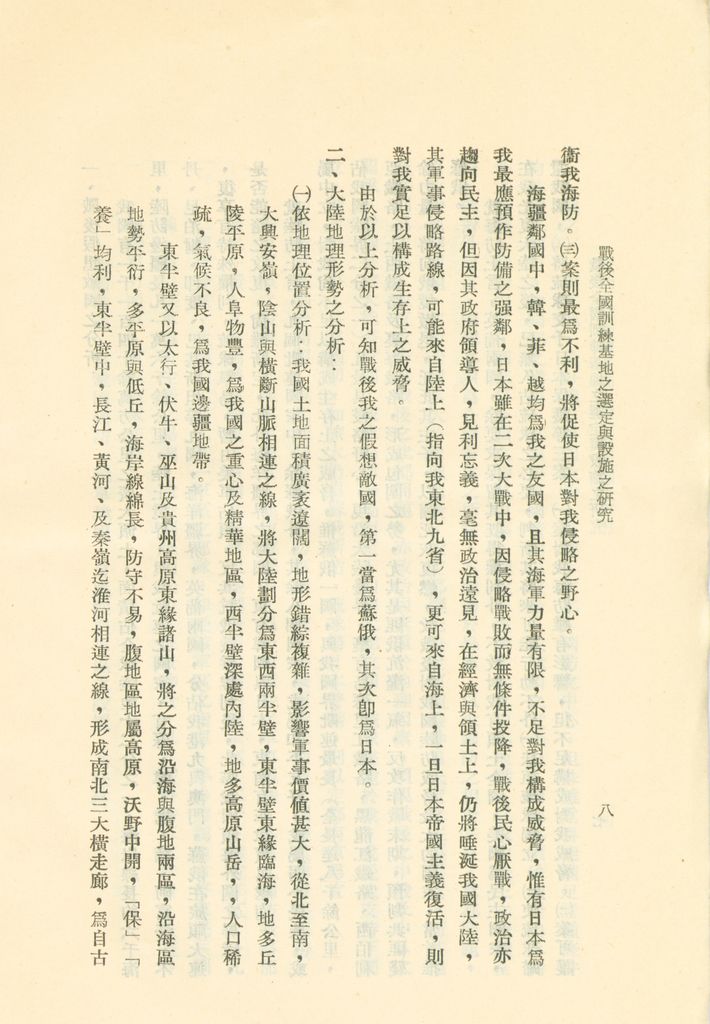 戰後全國訓練基地之選定與設施之研究
八
衞我海防。㈢案則最爲不利，將促使日本對我侵略之野心。
海疆鄰國中，韓、菲、越均爲我之友國，且其海軍力量有限，不足對我構成威脅，惟有日本爲
我最應預作防備之强鄰，日本雖在二次大戰中，因侵略戰敗而無條件投降，戰後民心厭戰，政治亦
趨向民主，但因其政府領導人，見利忘義，毫無政治遠見，在經濟與領土上，仍將唾涎我國大陸，
其軍事侵略路線，可能來自陸上（指向我東北九省），更可來自海上，一旦日本帝國主義復活，則
對我實足以構成生存上之威脅。
由於以上分析，可知戰後我之假想敵國，第一當爲蘇俄，其次卽爲日本。
二、大陸地理形勢之分析：
㈠依地理位置分析：我國土地面積廣袤遼闊，地形錯綜複雜，影響軍事價值甚大，從北至南，
大興安嶺，陰山與橫斷山脈相連之線，將大陸劃分爲東西兩半壁，東半壁東緣臨海，地多丘
陵平原，人阜物豐，爲我國之重心及精華地區，西半壁深處內陸，地多高原山岳，人口稀
疏，氣候不良，爲我國邊疆地帶。
東半壁又以太行、伏牛、巫山及貴州高原東緣諸山，將之分爲沿海與腹地兩區，沿海區
地勢平衍，多平原與低丘，海岸線綿長，防守不易，腹地區地屬高原，沃野中開，「保」「
養」均利，東半壁中，長江、黃河、及秦嶺迄淮河相連之線，形成南北三大橫走廊，爲自古